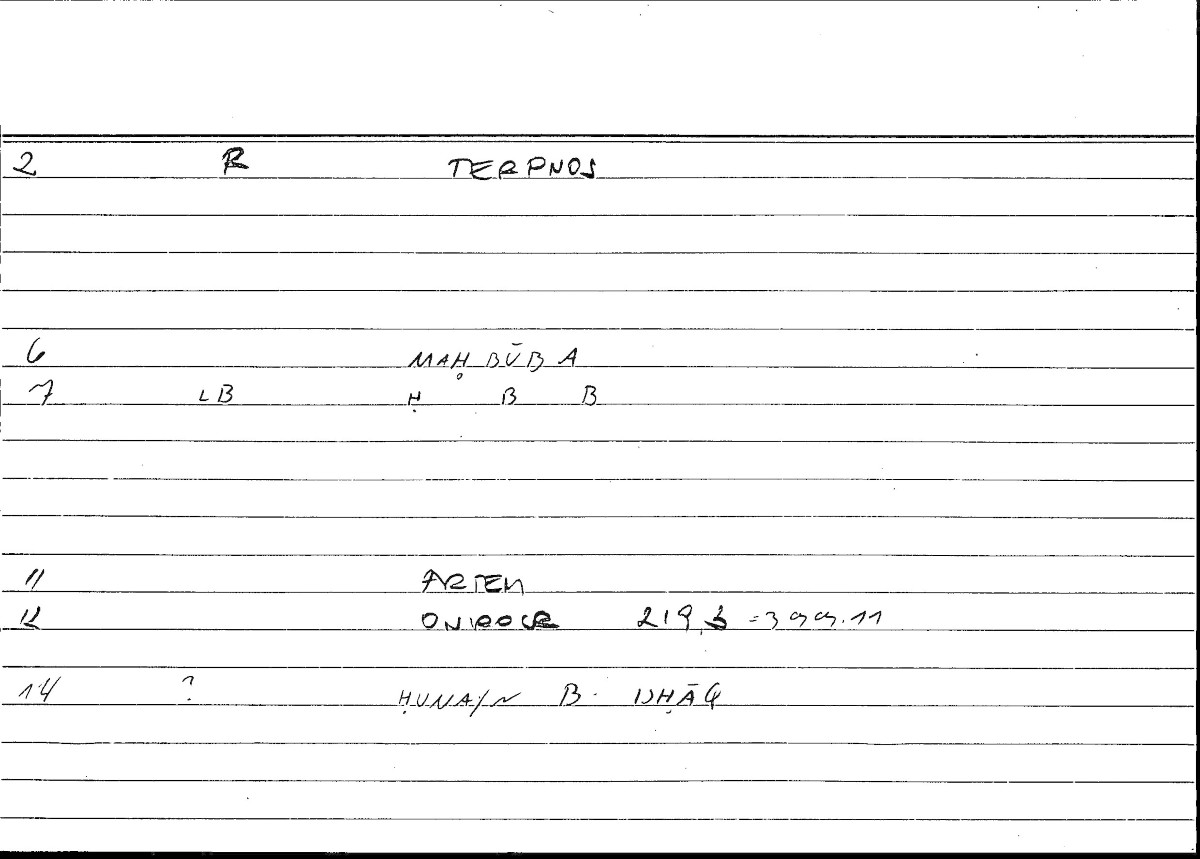 2 R TERPNOS
6 MAḤBŪBA
7 LB Ḥ B B
11 ARTEM
12 ONIROCR 219, = 399.11
14 ? ḤUNAYN B. ISḤĀQ